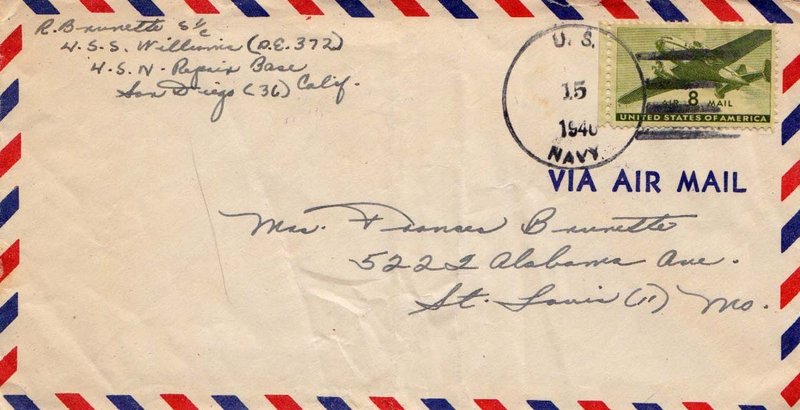 R. Brunette S 1/c
U.S.S. Williams (D.E. 372)
U.S.N. Repair Base
San Diego (36) Calif.
U.S.
15
1946
NAVY
AIR 8 MAIL
UNITED STATES OF AMERICA
VIA AIR MAIL
Mrs. Frances Brunette
5222 Alabama Ave.
St. Louis (11) Mo.